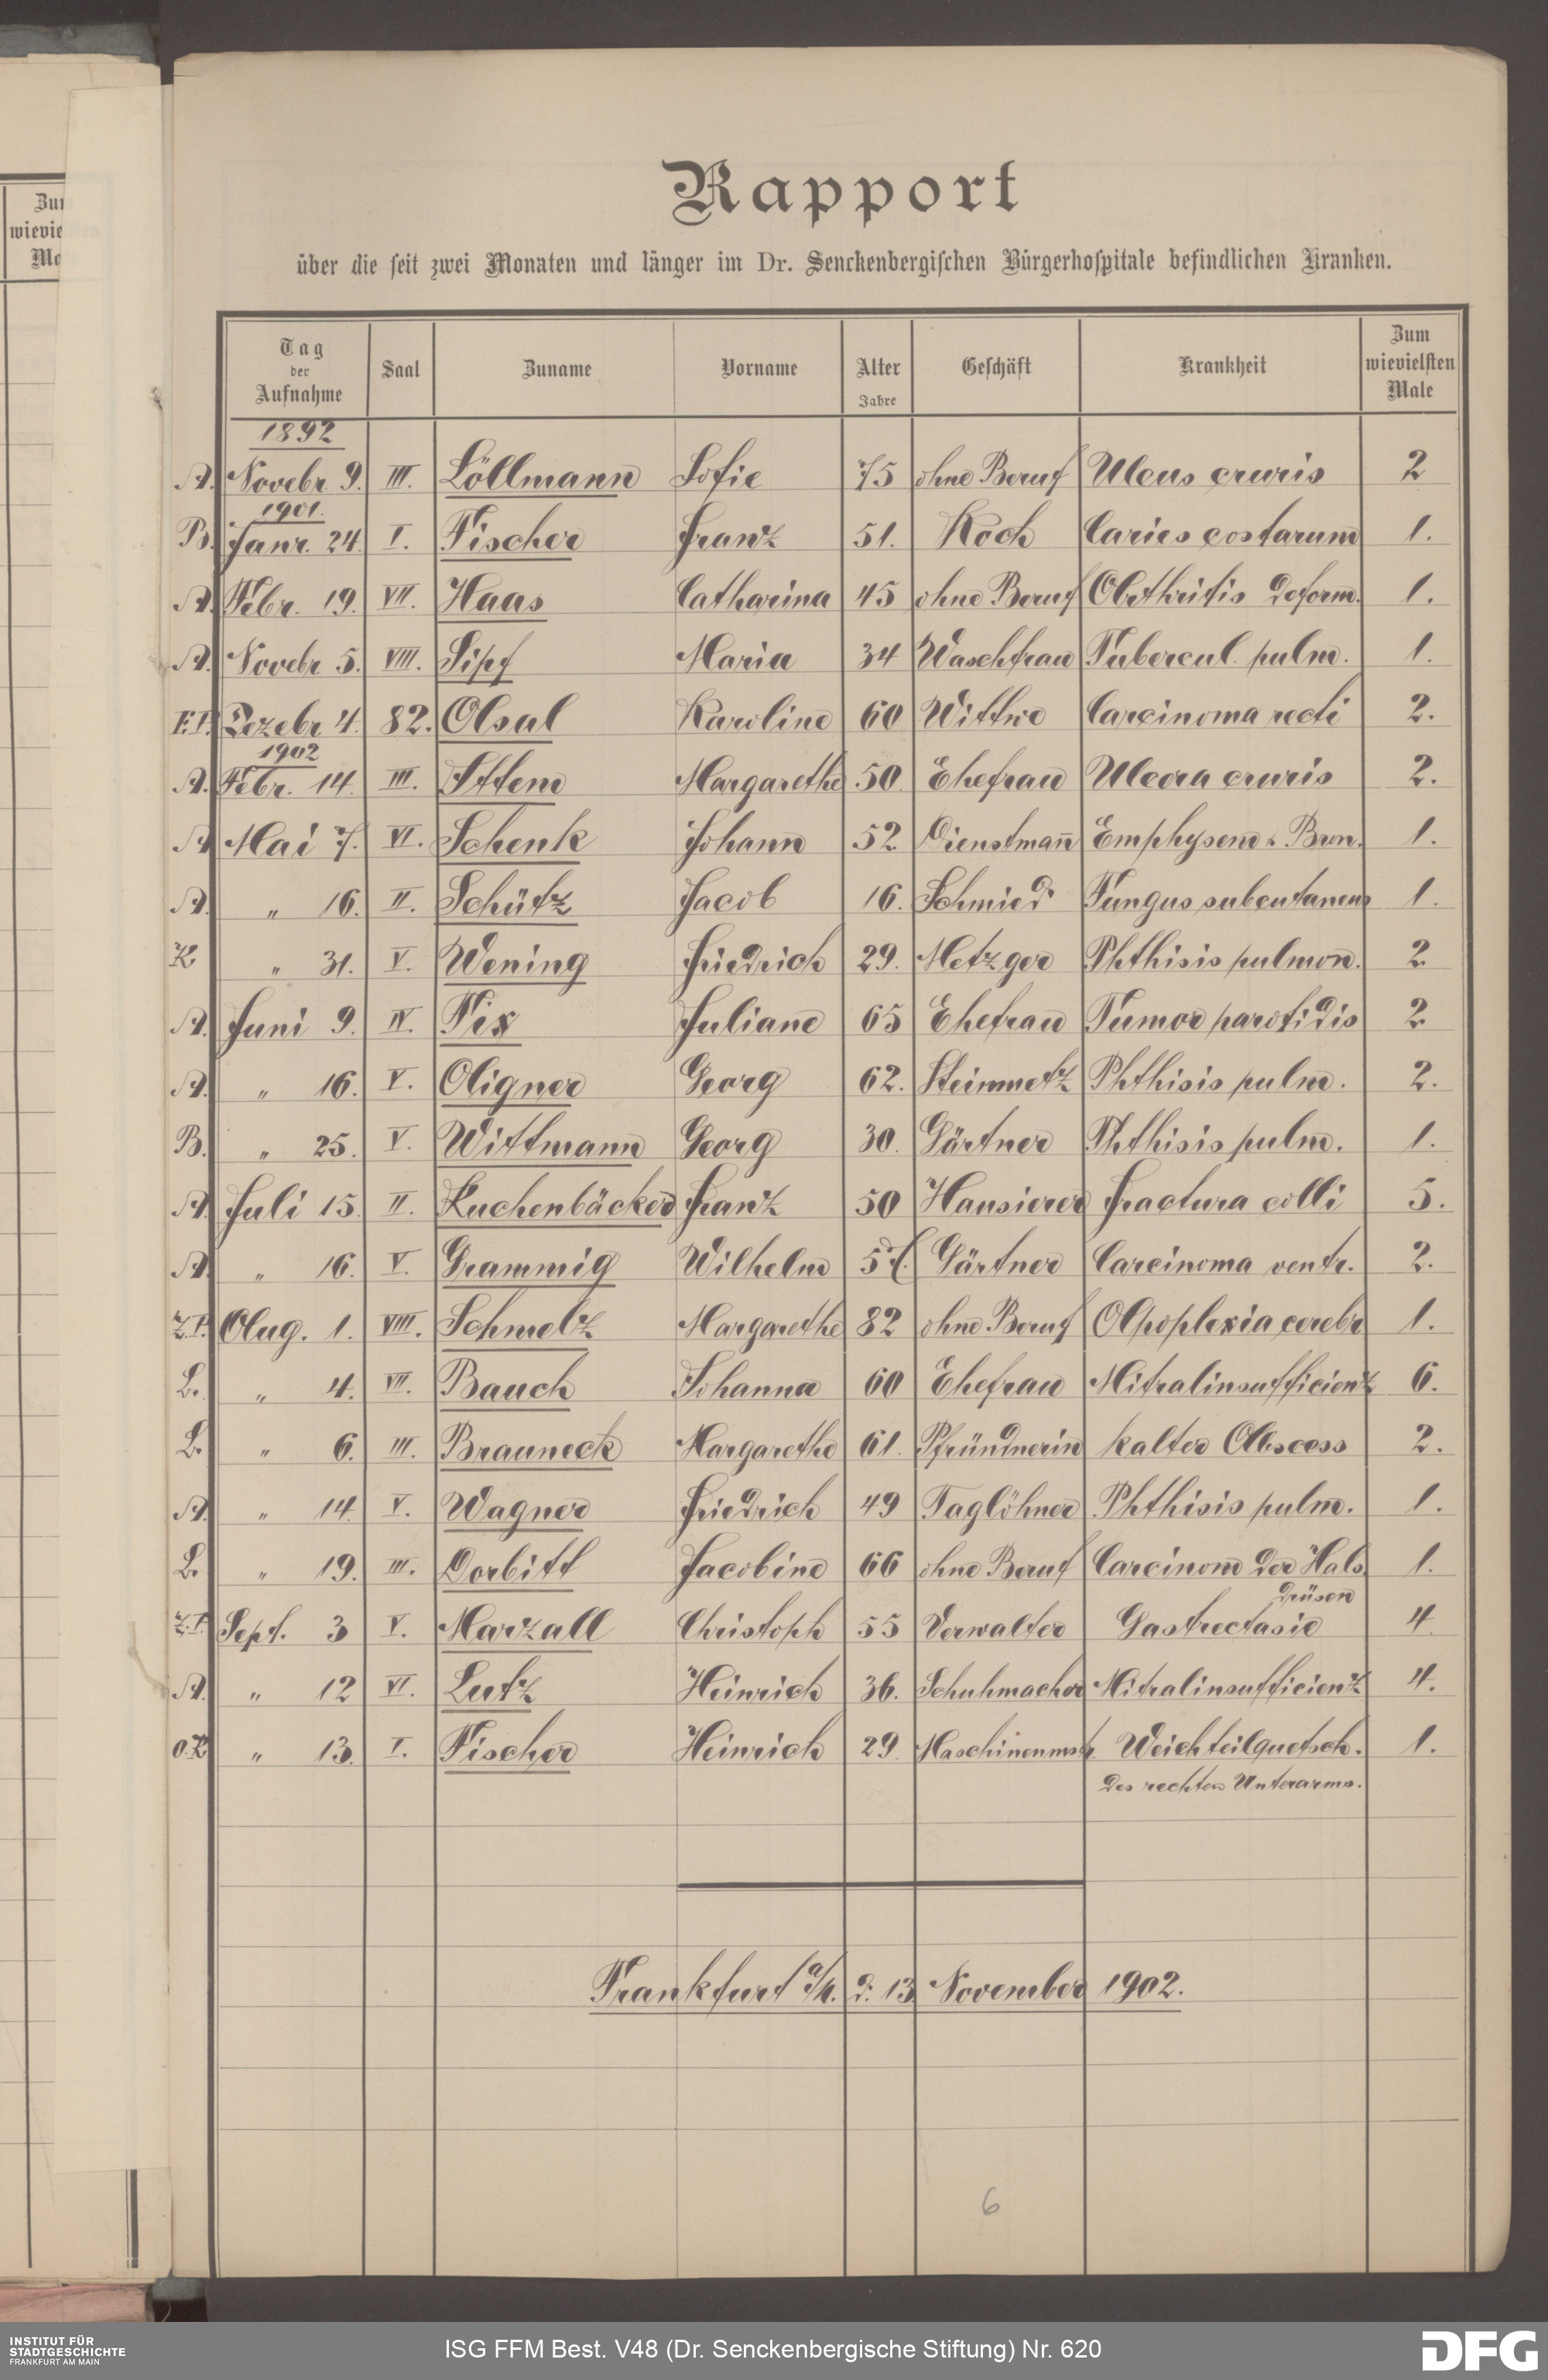 Zum
wieviel
Ma
Rapport
über die seit zwei Monaten und länger im Dr. Senckenbergischen Bürgerhospitale befindlichen Kranken.
Tag der Aufnahme Saal Zuname Vorname Alter Jahre Geschäft Krankheit Zum wievielsten Male
1892
A. Novebr 9. III. Löllmann Sofie 75 ohne Beruf Ulcus cruris 2
1901.
B. Janr. 24. I. Fischer Franz 51. Koch Caries costarum 1.
A. Febr. 19. VII. Haas Catharina 45 ohne Beruf Arthritis deform. 1.
A. Novebr 5. VIII. Sipf Maria 34 Waschfrau Tubercul. pulm. 1.
Dezebr 4. 82. Alsal Karoline 60 Wittwe Carcinoma recti 2.
1902
A. Febr. 14. III. Ittem Margarethe 50. Ehefrau Ulcera cruris 2.
A. Mai 7. VI. Schenk Johann 52 Dienstmañ Emphysem u. Bron. 1.
A. " 16. II. Schütz Jacob 16. Schmied Fungus subcutaneus 1.
K " 31. V. Wening Friedrich 29. Metzger Phthisis pulmon. 2.
A. Juni 9. IV. Fix Juliane 65 Ehefrau Tumor parotidis 2
A. " 16. V. Aligner Georg 62. Steinmetz Phthisis pulm. 2.
B. " 25. V. Wittmann Georg 30. Gärtner Phthisis pulm. 1.
A. Juli 15. II. Kuchenbäcker Franz 50 Hausierer Fractura colli 5.
A. " 16. V. Grammig Wilhelm Gärtner Carcinoma ventr. 2.
Z.P. Aug. 1. VIII. Schmelz Margarethe 82 ohne Beruf Apoplexia cerebr 1.
L. " 4. VII. Bauch Johanna 60 Ehefrau Mitralinsufficienz 6.
L. " 6. III. Brauneck Margarethe 61. Pfründnerin kalter Abscess 2.
A. " 14. V. Wagner Friedrich 49 Taglöhner Phthisis pulm. 1.
L. " 19. III. Dorbitt Jacobine 66 ohne Beruf Carcinom der Hals
drüsen 1.
Z.P. Sept. 3 V. Marzall Christoph 55 Verwalter Gastrectasie 4.
A. " 12 VI. Lutz Heinrich 36. Schuhmacher Mitralinsufficienz 4.
O.K " 13. I. Fischer Heinrich 29. Maschinenmstr. Weichteilquetsch. 1.
des rechten Unterarms.
Frankfurt a/M. d. 13 November 1902.
6
INSTITUT FÜR
STADTGESCHICHTE
FRANKFURT AM MAIN
ISG FFM Best. V48 (Dr. Senckenbergische Stiftung) Nr. 620
DFG